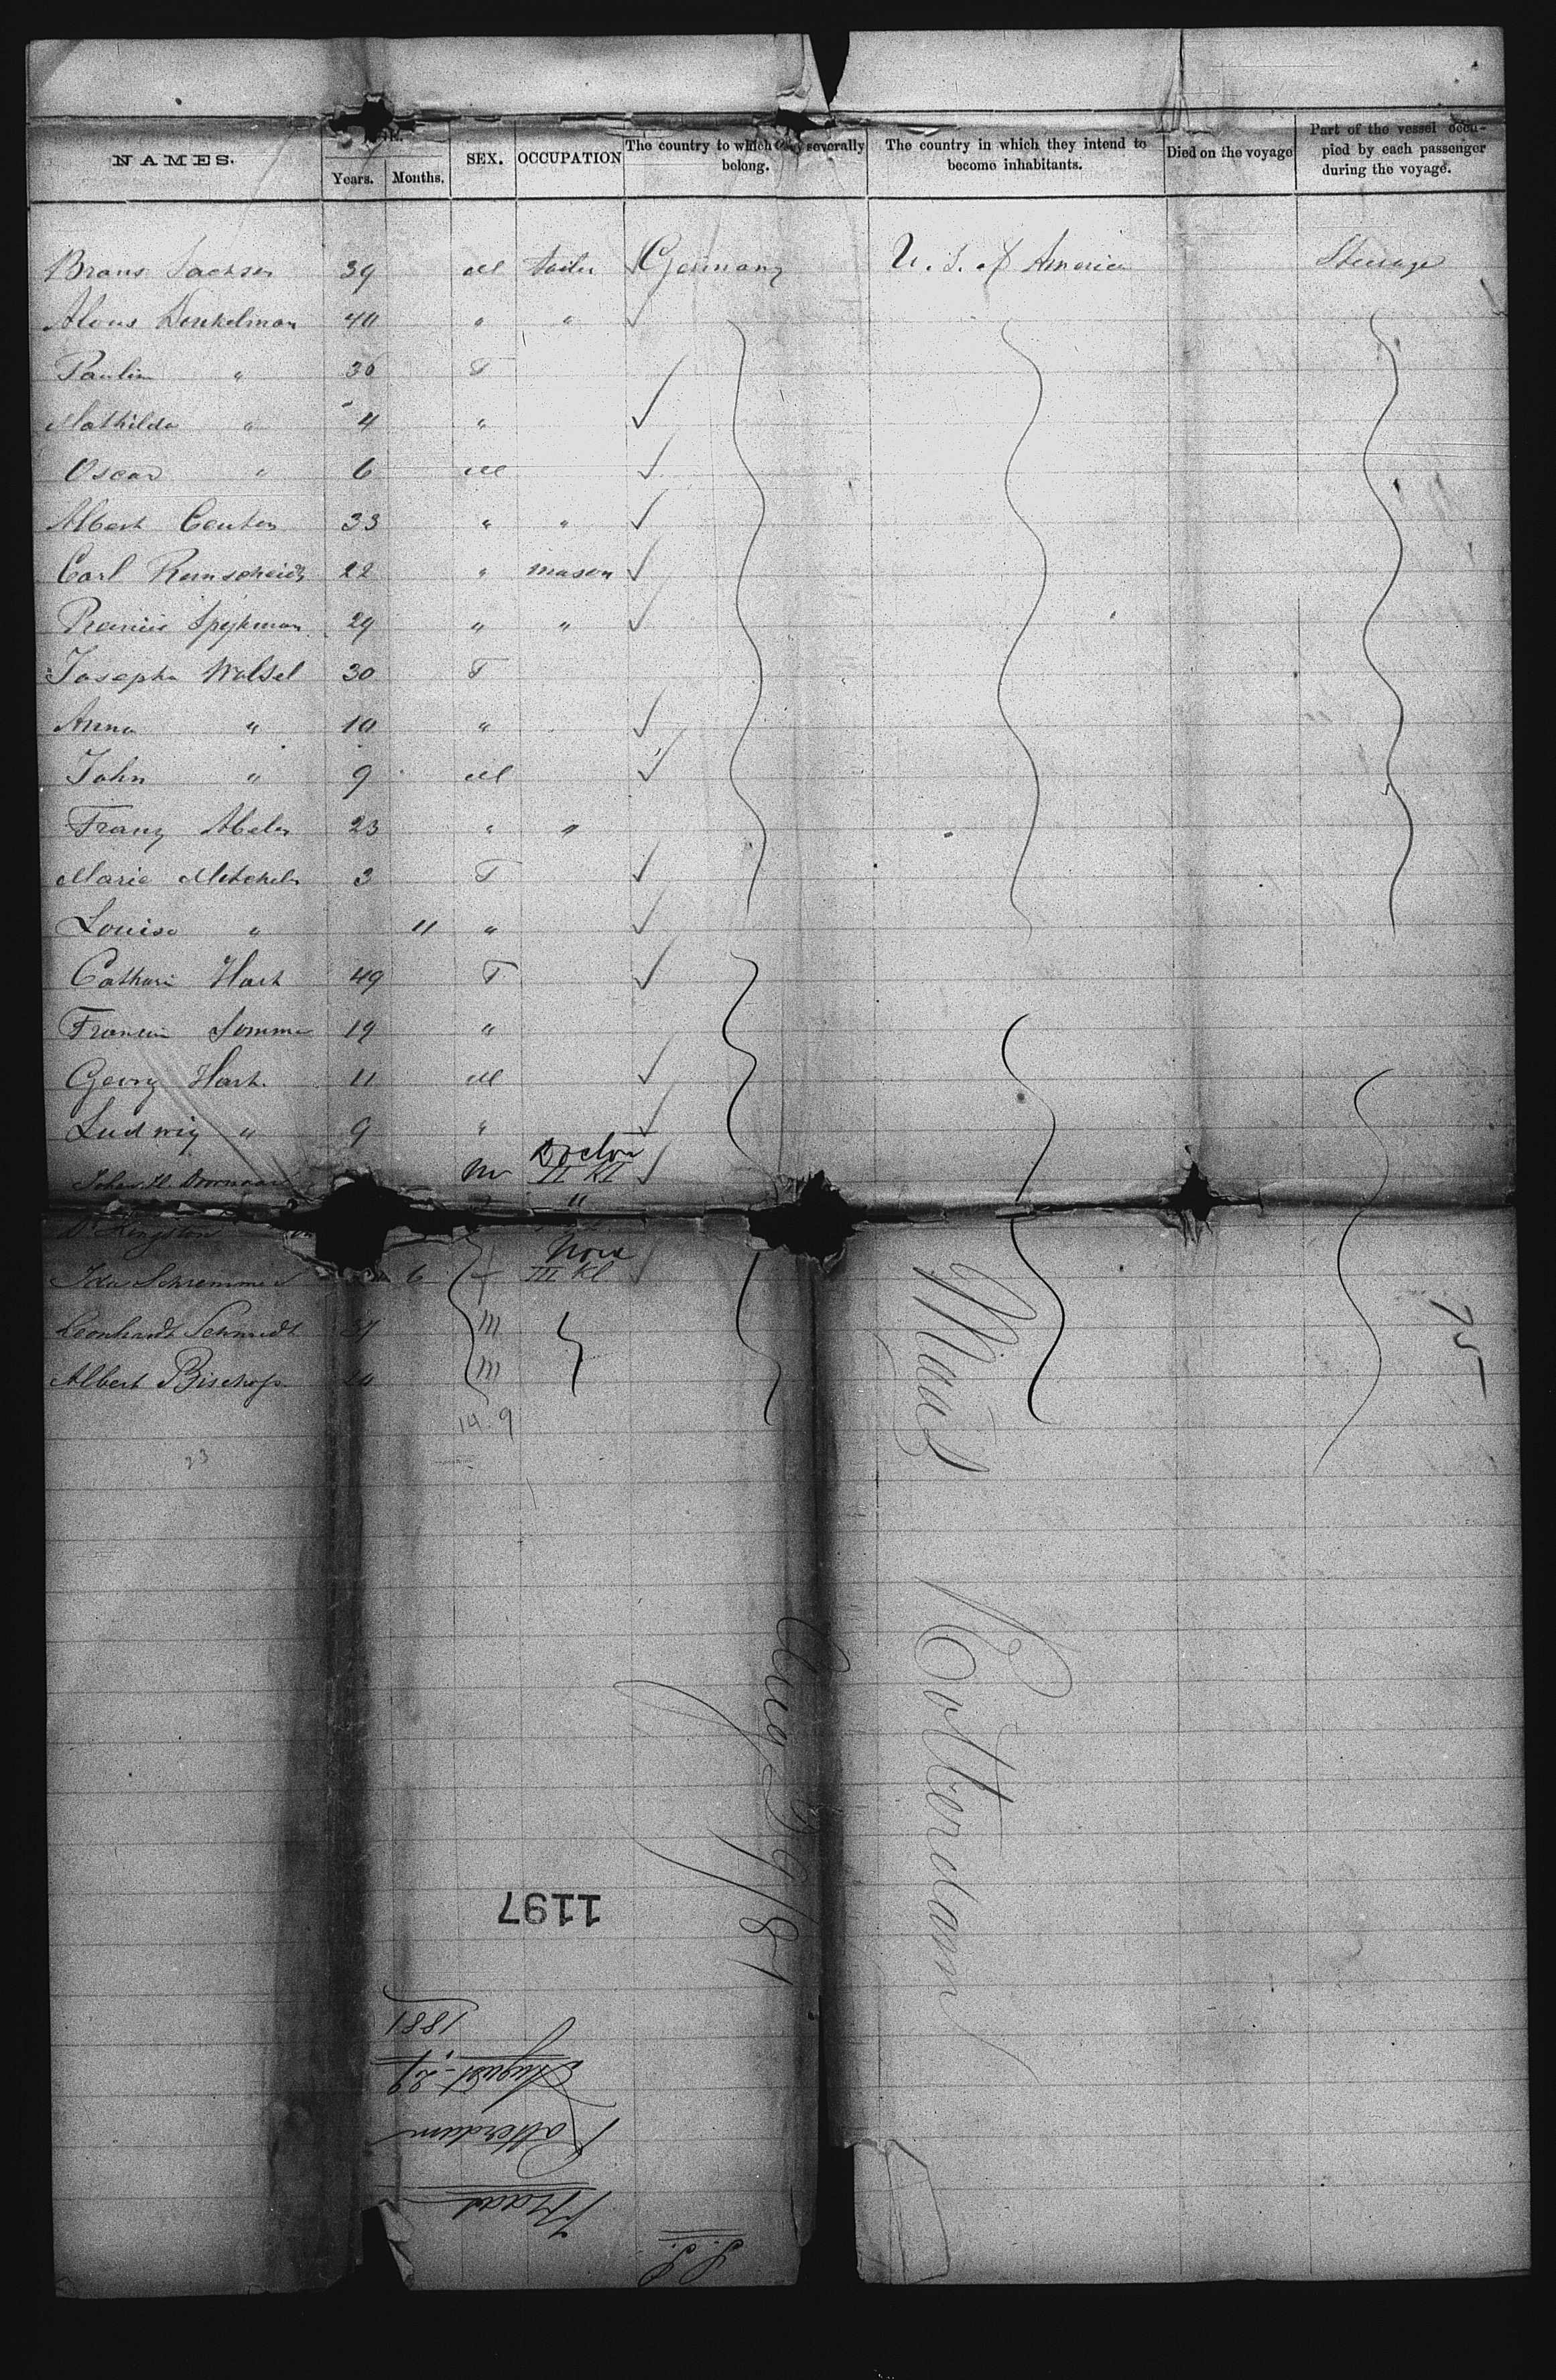 NAMES. Years. Months. SEX. OCCUPATION The country to which they severally belong. The country in which they intend to become inhabitants. Died on the voyage Part of the vessel occupied by each passenger during the voyage.
Sachsen 39 M Germany U. S. of America Steerage
40 " "
Paulin " 36 F
Mathilda " 4 "
Oscar " 6 M
Albert 33 " "
Carl Remscheidt 22 " mason
Spijkman 29 " "
Josepha Wolsel 30 F
Anna " 10 "
John " 9 M
Franz Abeler 23 " "
Marie 3 F
Louise " 11 "
Hart 49 F
19 "
Georg Hart 11 M
Ludwig " 9 "
Doctor
M II Kl
"
Kingston
None
Ida 6 f III Kl
Leonhardt Schmidt m
Albert Bischof m
14 9
23
75
Maas Rotterdam
Aug 29/81
1197
S.S.
Maas
Rotterdam
August - 29
1881